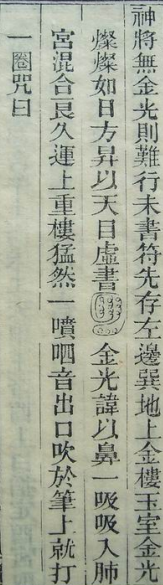 神將無金光則難行未書符先存左邊巽地上金樓玉室金光
燦燦如日方昇以天目虛書金光諱以鼻一吸吸入肺
宮混合良久運上重樓猛然一噴呬音出口吹於筆上就打
一圈咒曰